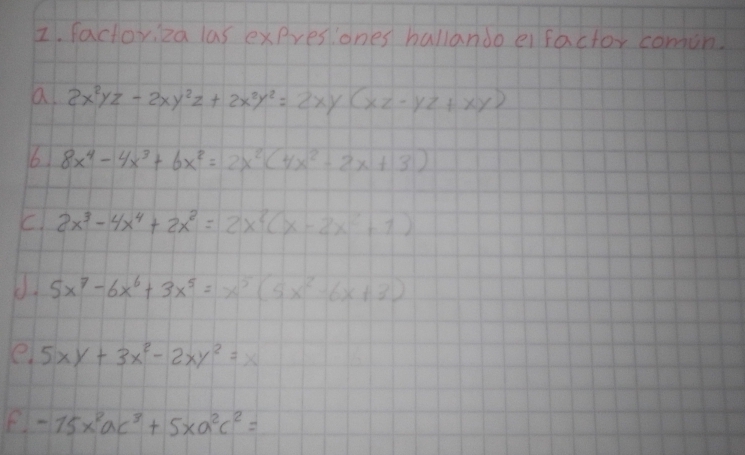 1. factoriza las expresiones hallando el factor común.
a. 2x²yz - 2xy²z + 2x²y² = 2xy (xz - yz + xy)
b. 8x⁴ - 4x³ + 6x² = 2x² (4x² - 2x + 3)
c. 2x³ - 4x⁴ + 2x² = 2x² (x - 2x² + 1)
d. 5x⁷ - 6x⁶ + 3x⁵ = x⁵ (5x² - 6x + 3)
e. 5xy + 3x² - 2xy² = x
f. -15x²ac³ + 5xa²c² =